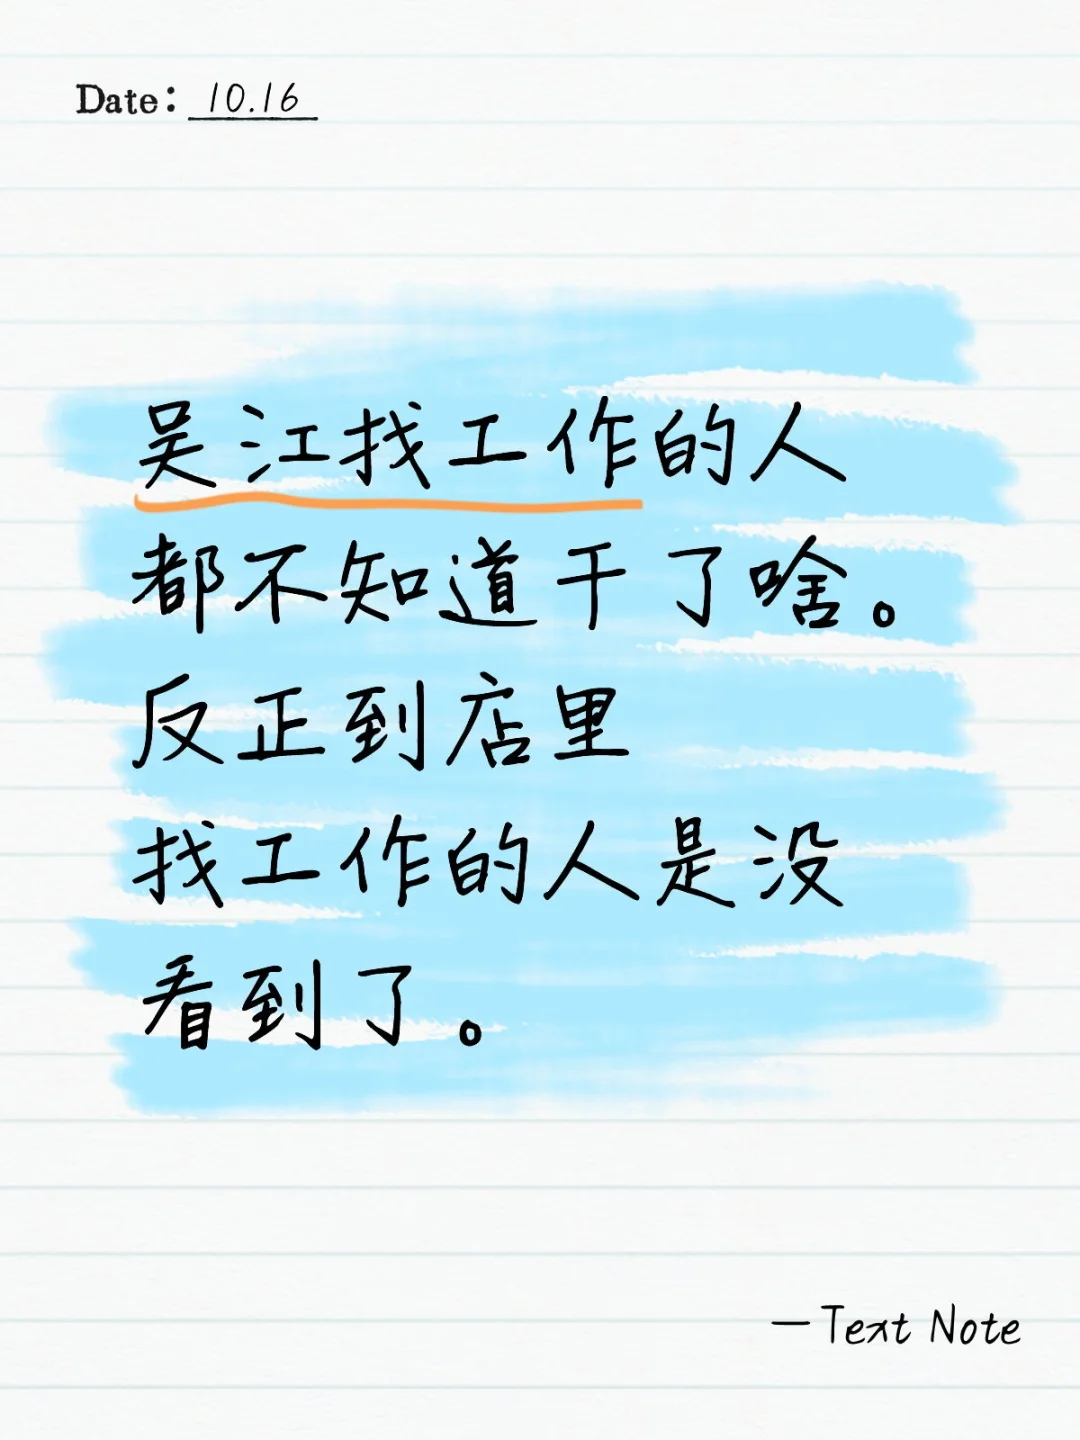 Date: 10.16
吴江找工作的人
都不知道干了啥。
反正到店里
找工作的人是没
看到了。
—Text Note